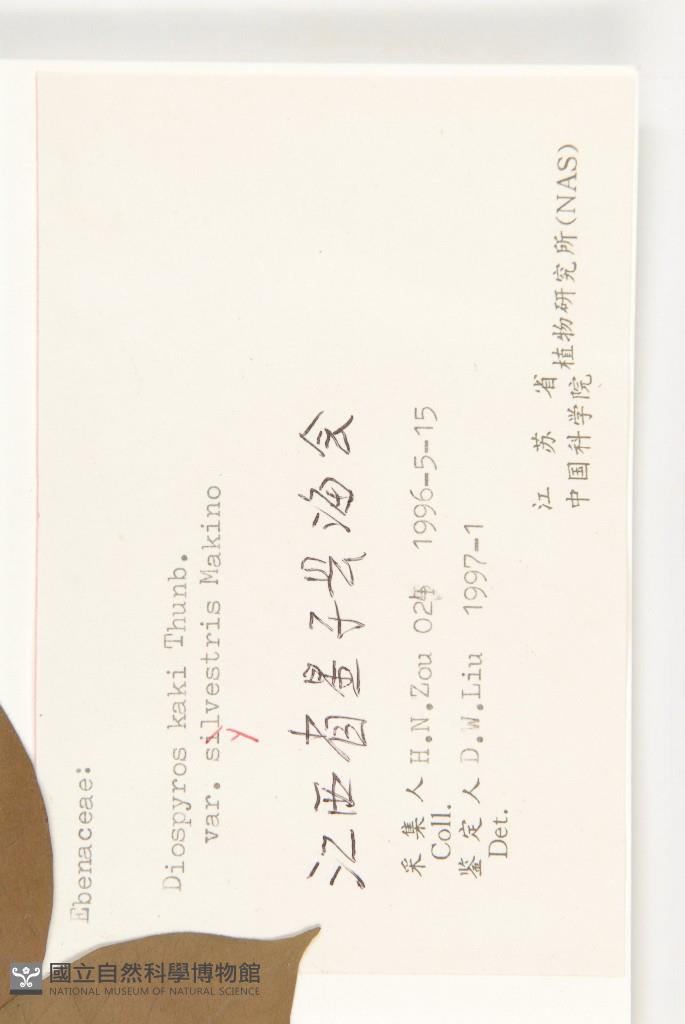 Ebenaceae:
Diospyros kaki Thunb.
var. silvestris Makino
y
江西省星子县海会
采集人 H.N.Zou 024 1996-5-15
Coll.
鉴定人 D.W.Liu 1997-1
Det.
江苏省
中国科学院 植物研究所(NAS)
國立自然科學博物館
NATIONAL MUSEUM OF NATURAL SCIENCE